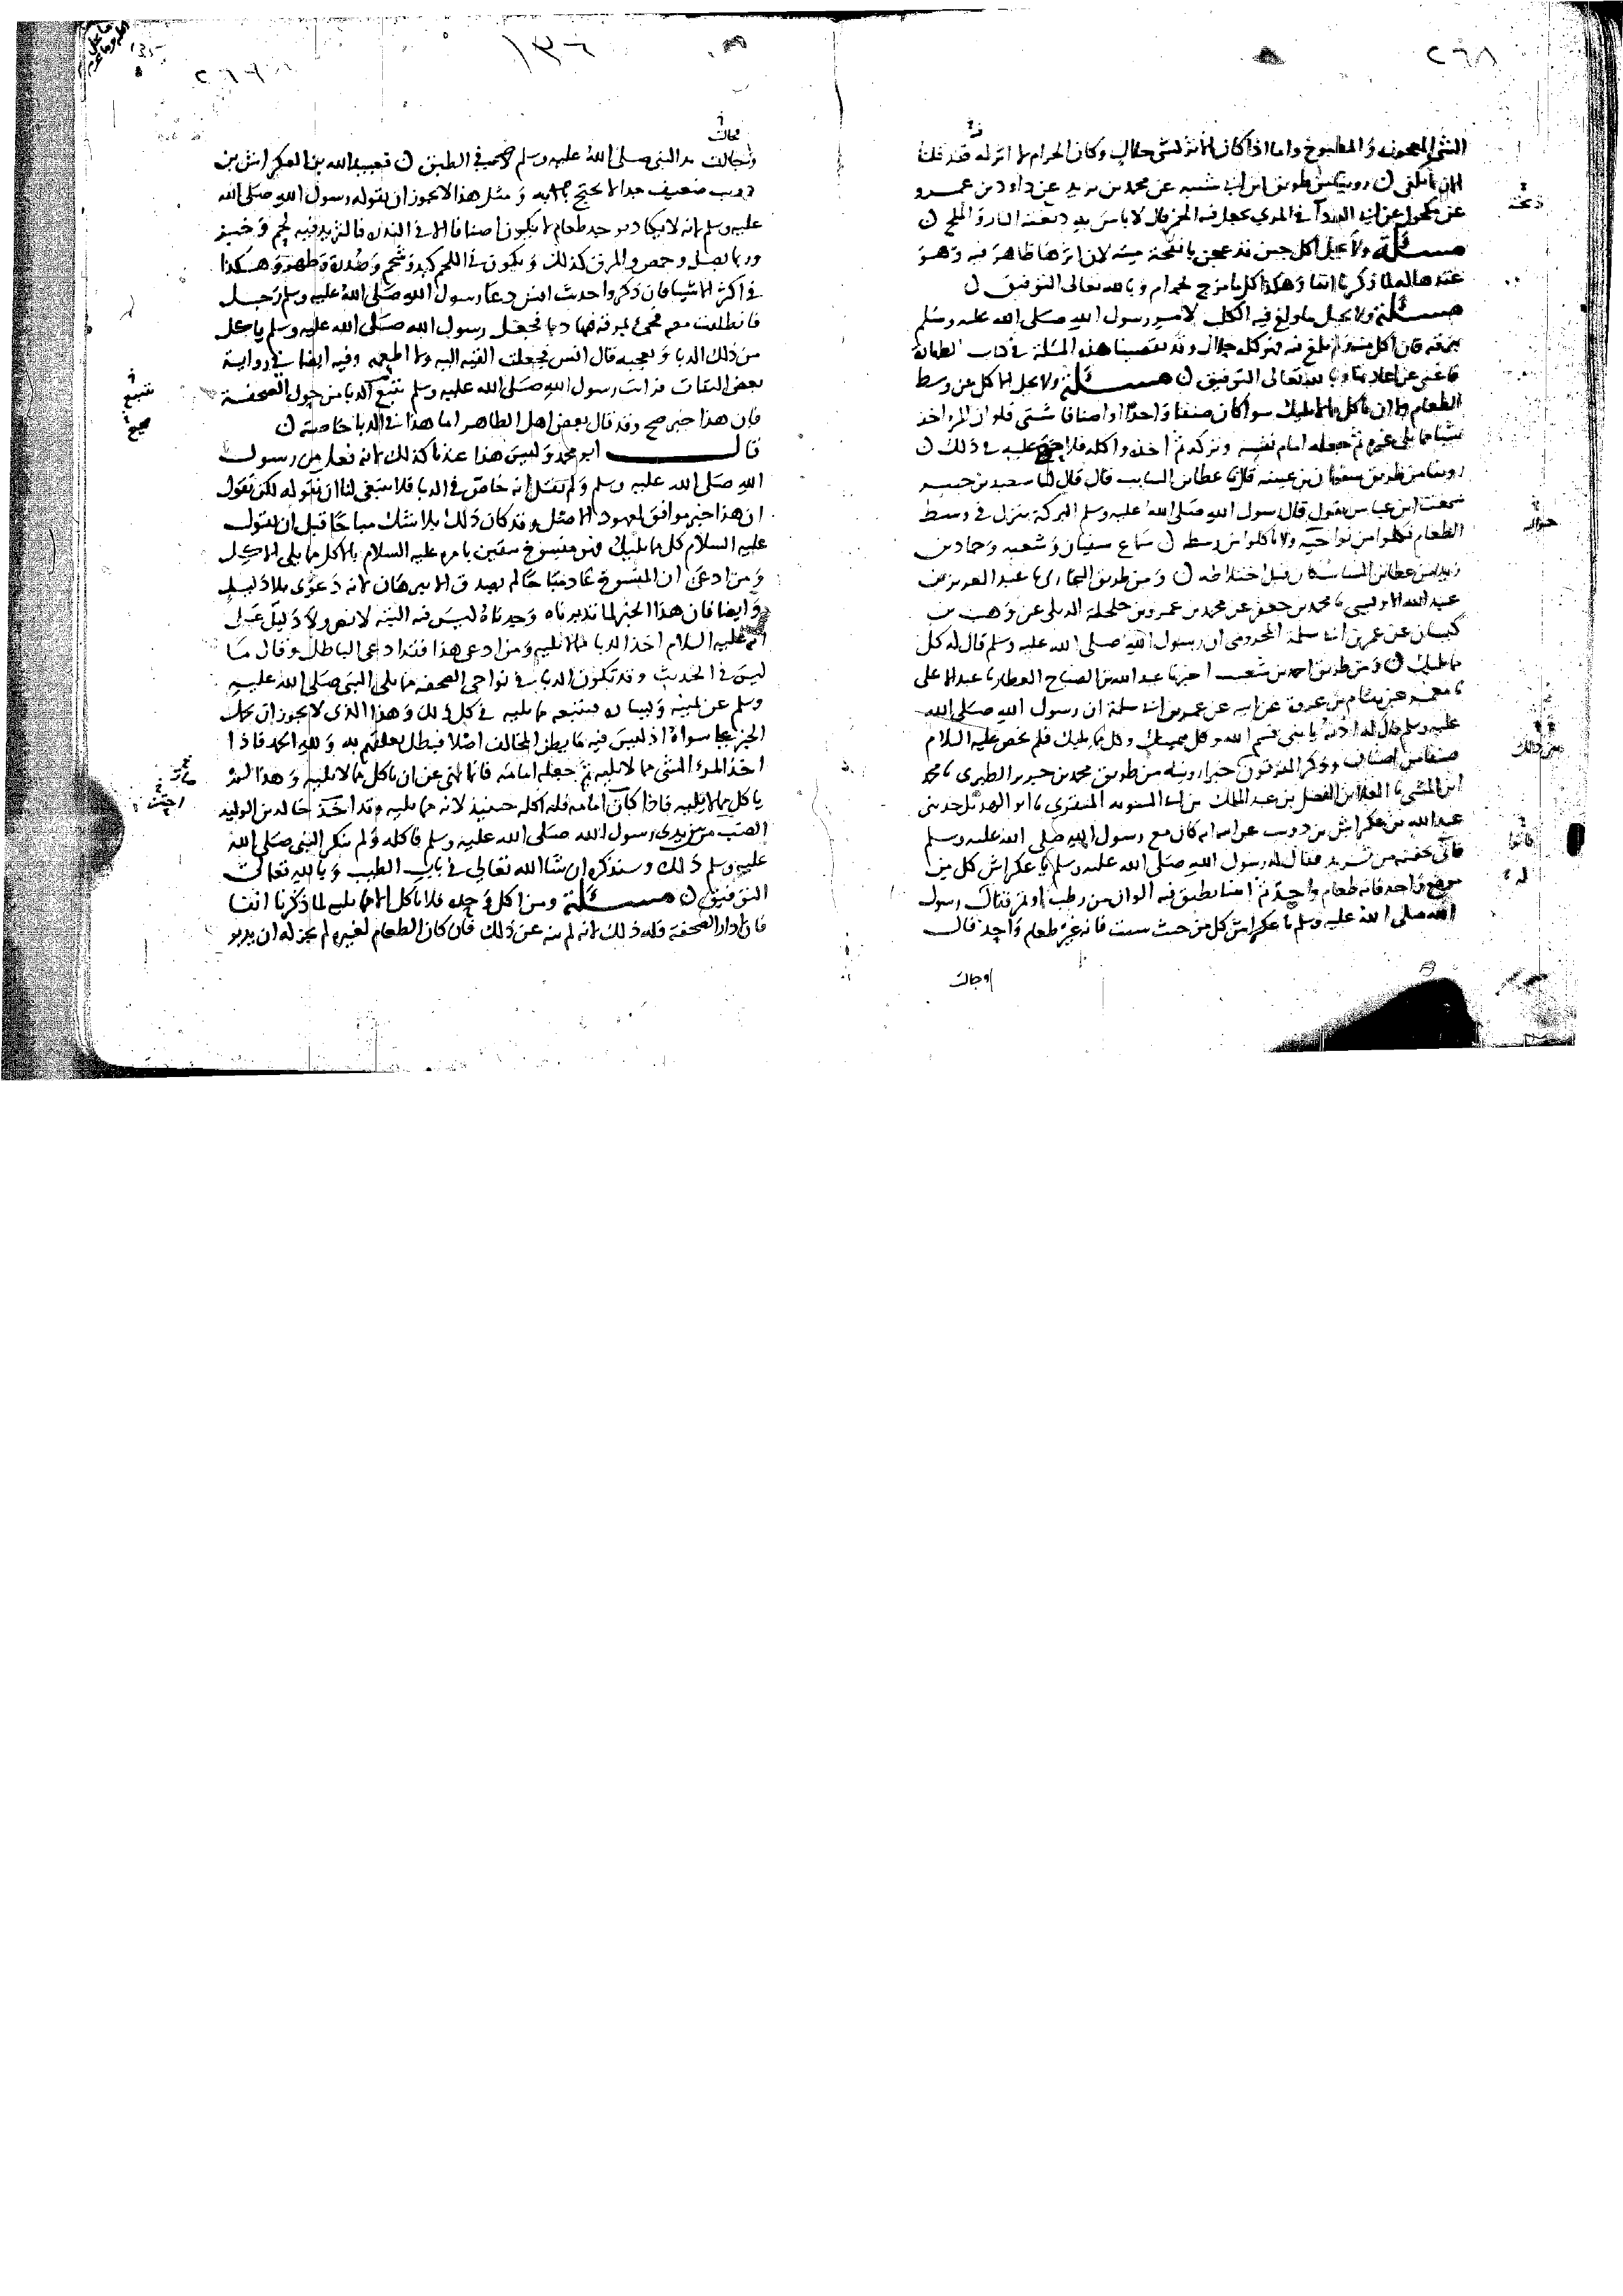 ٢٦٨
الشي المعجون والمطبوخ واما اذا كان لا اثر لشي حلال وكان الحرام لا اثر له فقد قلنا
الان ما يكفي ن روينا من طريق ابن ابي شيبه عن محمد بن يزيد عن داود بن عمرو
عن مكحول عن ابي الدردآ في المري يجعل فيه الخمر قال لا باس به ذبحته النار والملح ن
مسئلة ولا يحل اكل جبن قد عجن بانفحة ميتة لان اثرها ظاهر فيه وهو
عقدها له لما ذكرنا انفا وهكذا كل ما مزج بحرام وبالله تعالى التوفيق ن
مسئلة ولا يحل ما ولغ فيه الكلب لامر رسول الله صلى الله عليه وسلم
بهرقه فان اكل منه ولم يلغ فيه فهو كله حلال وقد تقصينا هذه المسئلة في كتاب الطهارة
فاغنى عن اعادتها وبالله تعالى التوفيق ن مسئلة ولا يحل الاكل من وسط
الطعام ولا ان ياكل مما لا يليك سوا كان صنفا واحدا او اصنافا شتى فلو ان المرء اخذ
شيئا مما يلي غيره ثم جعله امام نفسه وتركه ثم اخذه واكله فلا حرج عليه في ذلك ن
روينا من طريق سفيان بن عيينه قال نا عطا بن السايب قال قال لنا سعيد بن جبير
سمعت ابن عباس يقول قال رسول الله صلى الله عليه وسلم البركة تنزل في وسط
الطعام فكلوا من نواحيه ولا تاكلوا من وسطه ن سماع سفيان وشعبه وحماد بن
زيد من عطا بن السايب كان قبل اختلاطه ن ومن طريق البخاري نا عبد العزيز بن
عبد الله الاويسي نا محمد بن جعفر عن محمد بن عمرو بن حلحلة الديلي عن وهب بن
كيسان عن عمر بن ابي سلمة المخزومي ان رسول الله صلى الله عليه وسلم قال له كل
مما يليك ن ومن طريق احمد بن شعيب اخبرنا عبد الله بن الصباح العطار نا عبد الاعلى
نا معمر عن هشام بن عروة عن ابيه عن عمر بن ابي سلمة ان رسول الله صلى الله
عليه وسلم قال له ادنه يا بني فسم الله وكل بيمينك وكل مما يليك فلم يخص عليه السلام
صنفا من اصناف وذكر المفرقون خبرا رويناه من طريق محمد بن جرير الطبري نا محمد
ابن المثنى نا العلا بن الفضل بن عبد الملك بن ابي السويه المنقري نا ابو الهذيل حدثني
عبد الله بن عكراش بن ذويب عن ابيه انه كان مع رسول الله صلى الله عليه وسلم
فاتي بجفنة من ثريد فقال له رسول الله صلى الله عليه وسلم يا عكراش كل من
موضع واحد فانه طعام واحد ثم اتينا بطبق فيه الوان من رطب او تمر فقال رسول
الله صلى الله عليه وسلم يا عكراش كل من حيث شيت فانه غير طعام واحد قال
وجالت
١٣٦
فجالت
وجالت يد النبي صلى الله عليه وسلم في الطبق ن فعبيد الله بن العكراش بن
ذويب ضعيف جدا لا يحتج به ومثل هذا لا يجوز ان يقوله رسول الله صلى الله
عليه وسلم لانه لا يكاد يوجد طعام لا يكون اصنافا الا في الندرة فالثريد فيه لحم وخبز
وربما بصل وحمص والمرق كذلك ويكون في اللحم كبد وشحم وصدرة وظهر وهكذا
في اكثر الاشيا فان ذكروا حديث انس دعا رسول الله صلى الله عليه وسلم رجل
فانطلقت معه فجئ بمرقة فيها دبا فجعل رسول الله صلى الله عليه وسلم ياكل
من ذلك الدبا ويعجبه قال انس فجعلت القيه اليه ولا اطعمه وفيه ايضا في رواية
بعض الثقات فرايت رسول الله صلى الله عليه وسلم يتتبع الدبا من حول الصحفة
فان هذا خبر صح وقد قال بعض اهل الظاهر انما هذا في الدبا خاصة ن
قال ابو محمد وليس هذا عندنا كذلك لانه فعل من رسول
الله صلى الله عليه وسلم ولم يقل انه خاص في الدبا فلا ينبغي لنا ان نقوله لكن نقول
ان هذا خبر موافق لمعهود الاصل وقد كان ذلك بلا شك مباحا قبل ان يقول
عليه السلام كل مما يليك فهو منسوخ بيقين بامره عليه السلام بالاكل مما يلي الاكل
ومن ادعى ان المنسوخ عاد مباحا لم يصدق الا ببرهان لانه دعوى بلا دليل
وايضا فان هذا الخبر لما تدبرناه وجدناه ليس فيه البتة لا نص ولا دليل على
انه عليه السلام اخذ الدبا مما لا يليه ومن ادعى هذا فقد ادعى الباطل وقال ما
ليس في الحديث وقد تكون الدبا في نواحي الصحفه مما يلي النبي صلى الله عليه
وسلم عن يمينه ويساره فيتتبعه مما يليه في كل ذلك وهذا الذي لا يجوز ان يحمل
الخبر على ما سواه اذ ليس فيه ما يظن المخالف اصلا فبطل تعلقهم به ولله الحمد فاذا
اخذ المرء الشي مما لا يليه ثم جعله امامه فانما نهي عن ان ياكل مما لا يليه وهذا لم
ياكل مما لا يليه فاذا كان امامه فله اكله حينيذ لانه مما يليه وقد اخذ خالد بن الوليد
الضب من بين يدي رسول الله صلى الله عليه وسلم فاكله ولم ينكر النبي صلى الله
عليه وسلم ذلك وسنذكره ان شا الله تعالى في باب الضب وبالله تعالى
التوفيق ن مسئلة ومن اكل وحده فلا ياكل الا مما يليه لما ذكرنا انفا
فان ادار الصحفة فله ذلك لانه لم ينه عن ذلك فان كان الطعام لغيره لم يجز له ان يدير